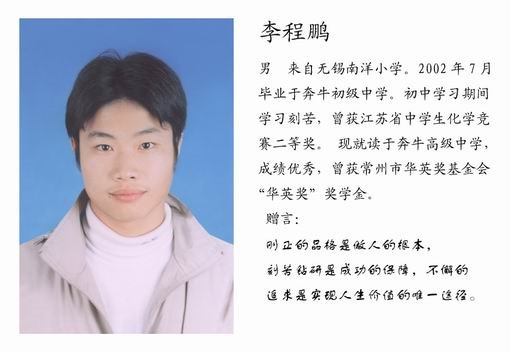 李程鹏
男 来自无锡南洋小学。2002年7月
毕业于奔牛初级中学。初中学习期间
学习刻苦，曾获江苏省中学生化学竞
赛二等奖。 现就读于奔牛高级中学，
成绩优秀，曾获常州市华英奖基金会
“华英奖”奖学金。
赠言：
刚正的品格是做人的根本，
刻苦钻研是成功的保障，不懈的
追求是实现人生价值的唯一途径。